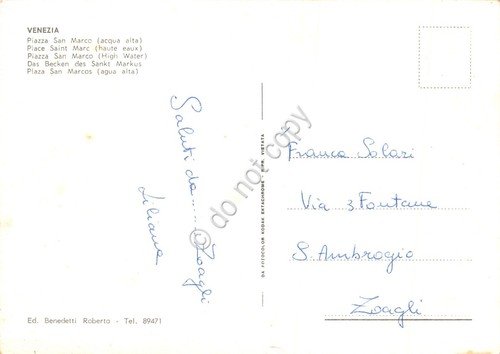 VENEZIA
Piazza San Marco (acqua alta)
Place Saint Marc (haute eaux)
Piazza San Marco (High Water)
Das Becken des Sankt Markus
Plaza San Marcos (agua alta)
Saluti da..... Zoagli
Liliana
© do not copy
DA FOTOCOLOR KODAK EKTACHROME - RIPR. VIETATA
Franca Solari
Via 3 Fontane
S. Ambrogio
Zoagli
Ed. Benedetti Roberto - Tel. 89471